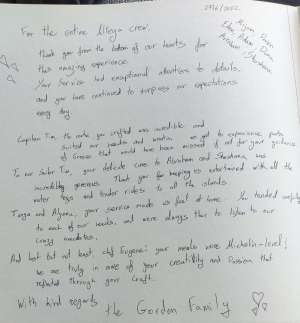 27/6/2022
For the entire Allegra crew,
Thank you from the bottom of our hearts for
this amazing experience.
Your service had exceptional attention to details,
and you have continued to surpass our expectations
every day.
Captain Tim, the route you crafted was incredible and
suited our needs and wants. We got to experience parts
of Greece that would have been missed if not for your guidance
To our sailor Tim, your delicate care to Abraham and Shoshana was
incredibly generous. Thank you for keeping us entertained with all the
water toys and tender rides to all the islands.
Tanya and Alyona, your service made us feel at home. You tended carefully
to each of our needs, and were always there to listen to our
crazy
And last but not least, chef Eugene: your meals were Michelin-level;
we are truly in awe of your creativity and passion that
reflected through your craft.
With kind regards,
the Gordon Family